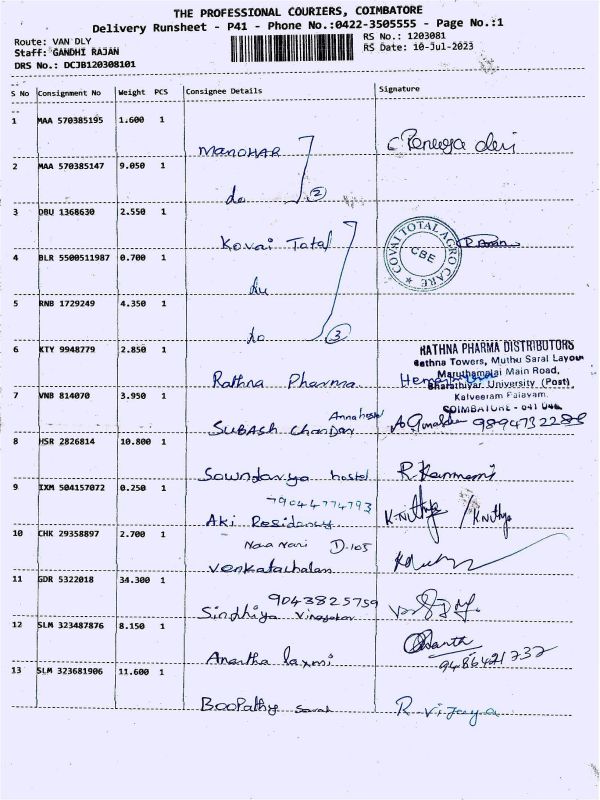 THE PROFESSIONAL COURIERS, COIMBATORE
Delivery Runsheet - P41 - Phone No.:0422-3505555 - Page No.:1
Route: VAN DLY
Staff: GANDHI RAJAN
DRS No.: DCJB120308101
RS No.: 1203081
RS Date: 10-Jul-2023
S No Consignment No Weight PCS Consignee Details Signature
1 MAA 570385195 1.600 1
MANOHAR
2 MAA 570385147 9.050 1
do 2
3 DBU 1368630 2.550 1
Kovai Total
COVAI TOTAL AGRO CARE
CBE
4 BLR 5500511987 0.700 1
do
5 RNB 1729249 4.350 1
do 3
6 KTY 9948779 2.850 1
Rathna Pharma
RATHNA PHARMA DISTRIBUTORS
Rathna Towers, Muthu Saral Layout
Maruthamalai Main Road,
Bharathiyar University (Post)
Kalveeram Palayam,
COIMBATORE - 641 046
7 VNB 814070 3.950 1
Anna hostel
SUBASH Chandar
9894732288
8 HSR 2826814 10.800 1
Soundarya hostel
9 IXM 504157072 0.250 1
79044774793
Aki Residency
K.Nithya / K.Nithya
10 CHK 29358897 2.700 1
D-105
Venkatachalam
11 GDR 5322018 34.300 1
9043825759
Sindhiya Vinayakar
12 SLM 323487876 8.150 1
Anantha laxmi
9486421732
13 SLM 323681906 11.600 1
Boopathy
R. Vijaya